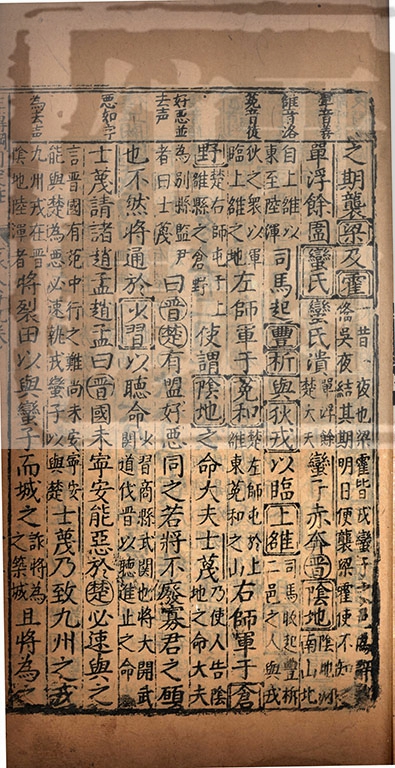 單音善
雒音洛
菟音徒
好惡並去声
惡如字
為去声
之期襲梁及霍 昔一夜也梁霍皆戎蠻子之邑 備吳夜結其期明日便襲梁霍使不知
單浮餘圍蠻氏蠻氏潰 單浮餘楚大夫 蠻子赤奔晉陰地 陰地河南山北
自上雒以東至陸渾 司馬起豐析與狄戎以臨上雒 司馬眅起豐析二邑之人與戎
狄之衆以軍臨上雒之地 左師軍于菟和 楚左師屯於上雒東菟和之山 右師軍于倉
野 楚右師屯于上雒縣之倉野 使謂陰地之命大夫士蔑 乃使人告陰地之命大夫
為別縣監尹者曰士蔑 曰晉楚有盟好惡同之若將不廢寡君之願
也不然將通於少習以聽命 少習商縣武關也將大開武關道伐晉以聽進止之命
士蔑請諸趙孟趙孟曰晉國未寧安能惡於楚必速與之
言晉國有范中行之難尚未安寧安能與楚為惡必速執戎蠻子以與楚 士蔑乃致九州之戎
九州戎在晉陰地陸渾者 將裂田以與蠻子而城之 詐將為之築城 且將為之